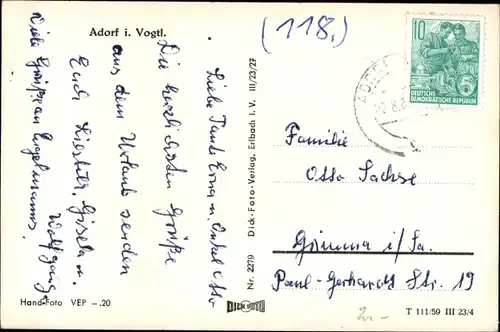 Adorf i. Vogtl.
(118.)
10
DEUTSCHE
DEMOKRATISCHE REPUBLIK
ADORF
Liebe Tante Erna u. Onkel Otto
Die herzlichsten Grüße
aus dem Urlaub senden
Euch Liesbeth, Gisela u.
Wolfgang.
Viele Grüße an Engelmanns.
Familie
Otto Sachse
Grimma i/Sa.
Paul-Gerhardt Str. 19
Nr. 2279 Dick-Foto-Verlag, Erlbach i. V. III/23/27
Hand-Foto VEP -,20
DICK FOTO
T 111/59 III 23/4